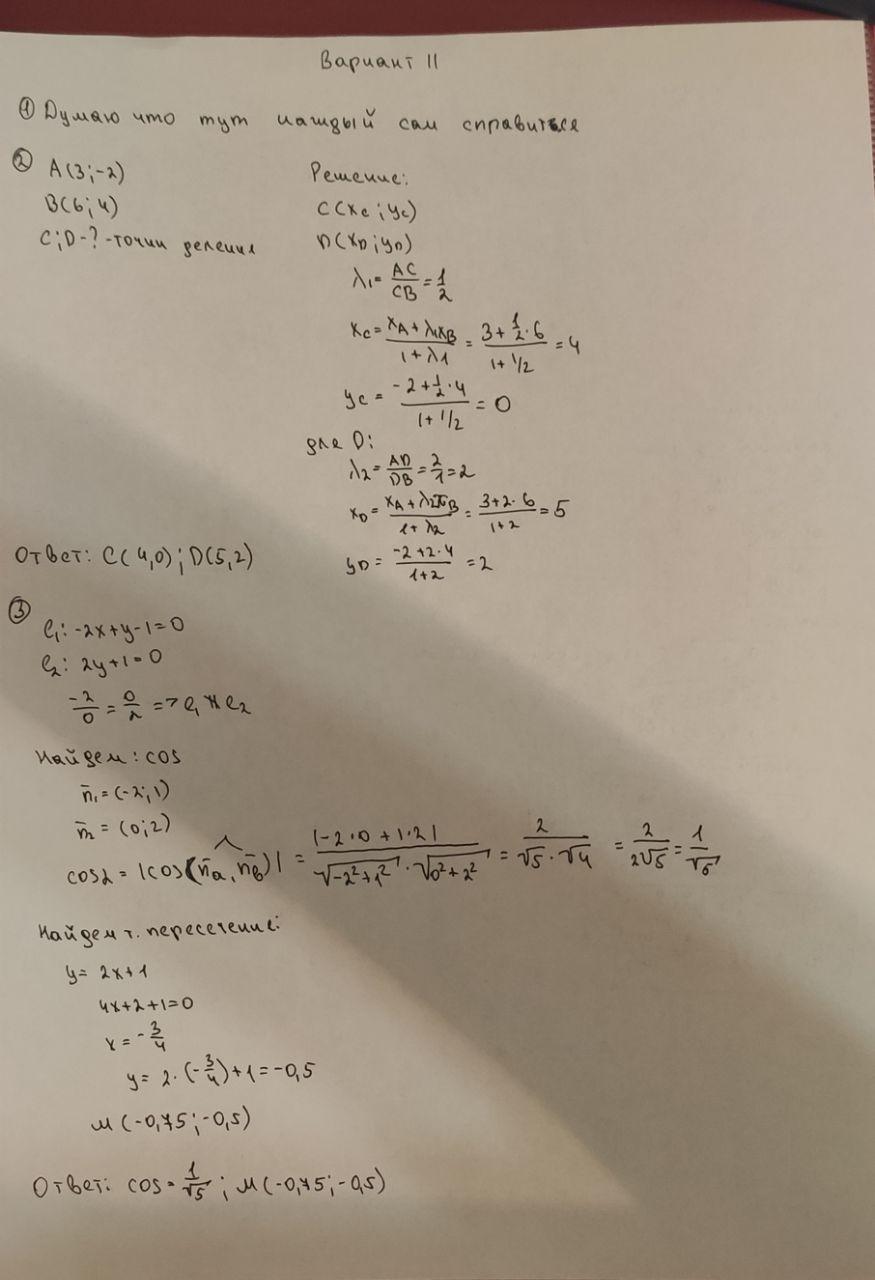 Вариант 11
① Думаю что тут каждый сам справиться
② A(3;-2)
B(6;4)
C;D-?-точки деления
Решение:
C(xc;yc)
D(xD;yD)
λ1=AC/CB=1/2
xc=(xA+λ1xB)/(1+λ1)=(3+1/2·6)/(1+1/2)=4
yc=(-2+1/2·4)/(1+1/2)=0
для D:
λ2=AD/DB=2/1=2
xD=(xA+λ2xB)/(1+λ2)=(3+2·6)/(1+2)=5
yD=(-2+2·4)/(1+2)=2
Ответ: C(4,0);D(5,2)
③
l1: -2x+y-1=0
l2: 2y+1=0
-2/0=0/2=>l1 ∦ l2
Найдем: cos
n̄1=(-2;1)
n̄2=(0;2)
cosα=|cos(n̄a,n̄b)|=|-2·0+1·2|/(√(-2²+1²)·√(0²+2²))=2/(√5·√4)=2/(2√5)=1/√5
Найдем т. пересечение:
y=2x+1
4x+2+1=0
x=-3/4
y=2·(-3/4)+1=-0,5
M(-0,75;-0,5)
Ответ: cos=1/√5; M(-0,75;-0,5)